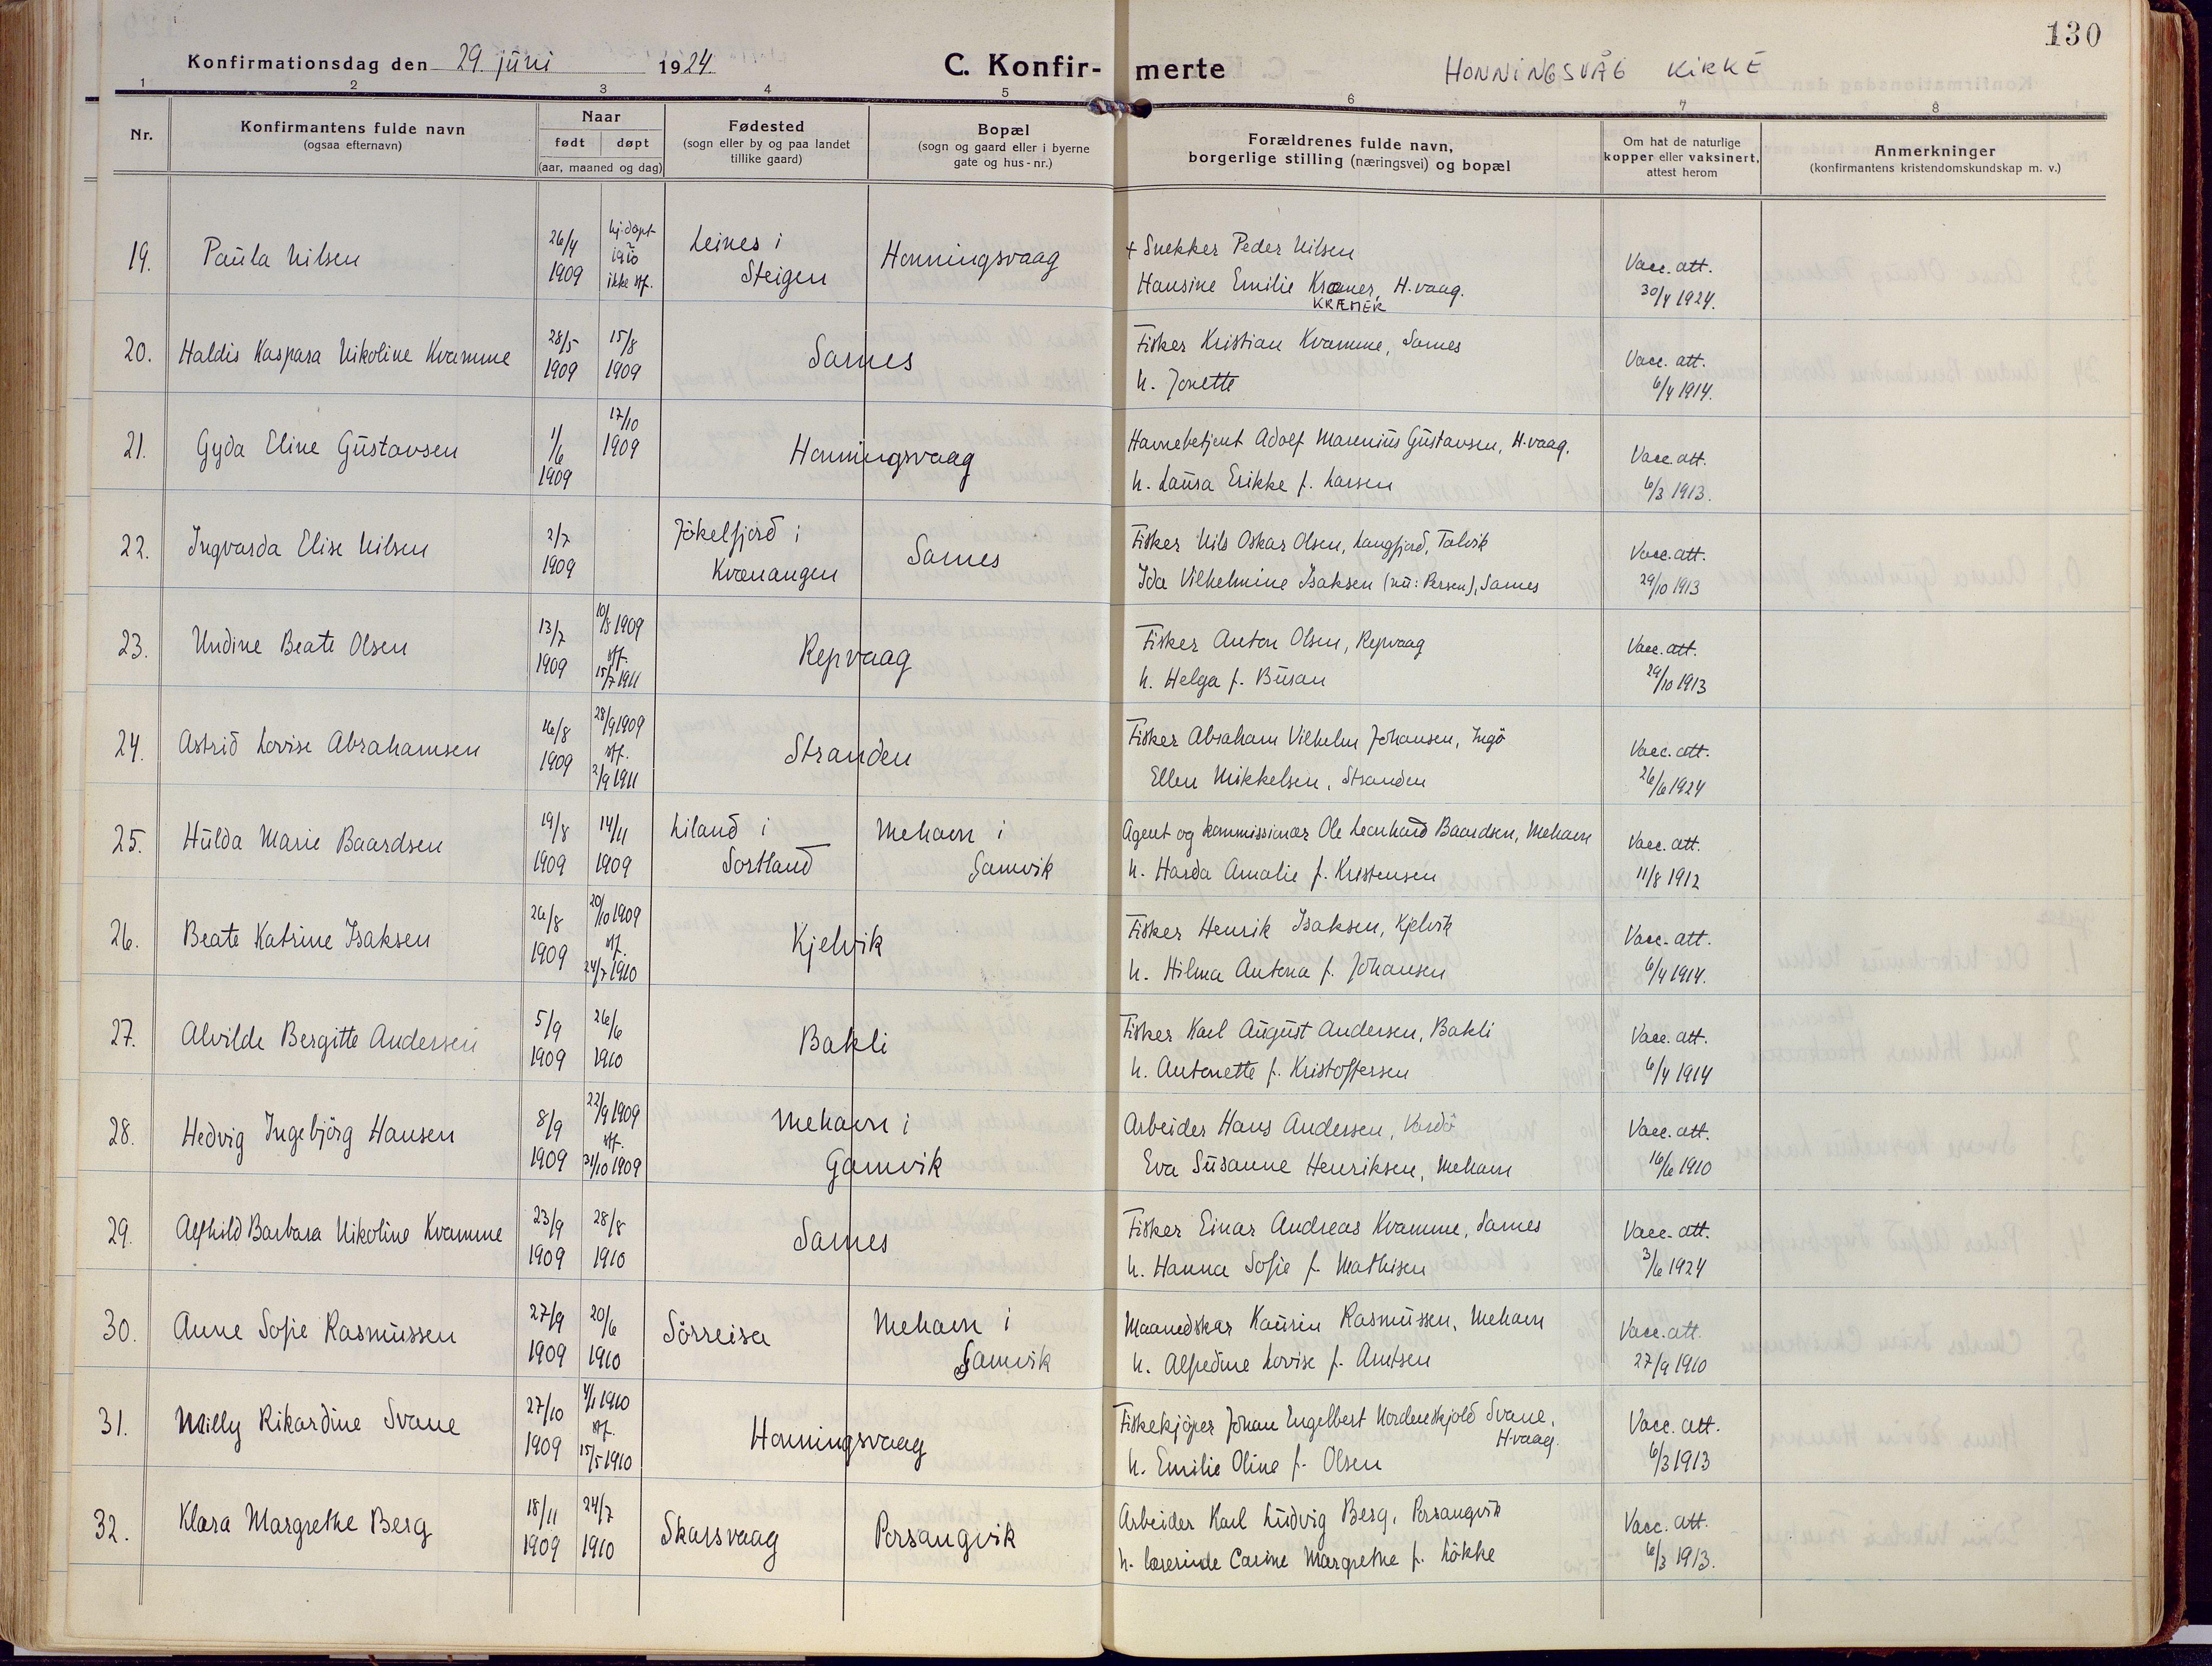 130
Konfirmationsdag den 29. juni 1924.
C. Konfir- merte
HONNINGSVÅG KIRKE
1 2 3 4 5 6 7 8
Nr.
Konfirmantens fulde navn
(ogsaa efternavn)
Naar
født døpt
(aar, maaned og dag)
Fødested
(sogn eller by og paa landet
tillike gaard)
Bopæl
(sogn og gaard eller i byerne
gate og hus-nr.)
Forældrenes fulde navn,
borgerlige stilling (næringsvei) og bopæl
Om hat de naturlige
kopper eller vaksinert,
attest herom
Anmerkninger
(konfirmantens kristendomskundskap m. v.)
19. Paula Nilsen
26/4
1909
hj.døpt
1910
ikke stf.
Leines i
Steigen
Honningsvaag
+ Snekker Peder Nilsen
Hansine Emilie Kræmer, H.vaag.
KRÆMER
Vacc. att.
30/4 1924.
20. Haldis Kaspara Nikoline Kvamme
28/5
1909
15/8
1909
Sarnes
Fisker Kristian Kvamme, Sarnes
h. Jonette
Vacc. att.
6/4 1914.
21. Gyda Eline Gustavsen
1/6
1909
17/10
1909
Honningsvaag
Havnebetjent Adolf Marenius Gustavsen, H.vaag.
h. Laura Erikke f. Larsen
Vacc. att.
6/3 1913.
22. Ingvarda Elise Nilsen
2/7
1909
Jökelfjord i
Kvænangen
Sarnes
Fisker Nils Oskar Olsen, Langfjord, Talvik
Ida Vilhelmine Isaksen (nu: Persen), Sarnes
Vacc. att.
29/10 1913
23. Undine Beate Olsen
13/7
1909
10/8 1909
stf.
15/7 1911
Repvaag
Fisker Anton Olsen, Repvaag
h. Helga f. Busan
Vacc. att.
29/10 1913
24. Astrid Lovise Abrahamsen
16/8
1909
28/9 1909
stf.
2/9 1911
Stranden
Fisker Abraham Vilhelm Johansen, Ingö
Ellen Mikkelsen, Stranden
Vacc. att.
26/6 1924
25. Hulda Marie Baardsen
19/8
1909
14/11
1909
Liland i
Sortland
Mehavn i
Gamvik
Agent og kommissionær Ole Leonhard Baardsen, Mehavn
h. Harda Amalie f. Kristensen
Vacc. att.
11/8 1912
26. Beate Katrine Isaksen
26/8
1909
20/10 1909
stf.
24/7 1910
Kjelvik
Fisker Henrik Isaksen, Kjelvik
h. Hilma Antona f. Johansen
Vacc. att.
6/4 1914.
27. Alvilde Bergitte Andersen
5/9
1909
26/6
1910
Bakli
Fisker Karl August Andersen, Bakli
h. Antonette f. Kristoffersen
Vacc. att.
6/4 1914
28. Hedvig Ingebjörg Hansen
8/9
1909
22/9 1909
stf.
31/10 1909
Mehavn i
Gamvik
Arbeider Hans Andersen, Vardö
Eva Susanne Henriksen, Mehavn
Vacc. att.
16/6 1910
29. Alfhild Barbara Nikoline Kvamme
23/9
1909
28/8
1910
Sarnes
Fisker Einar Andreas Kvamme, Sarnes
h. Hanna Sofie f. Mathisen
Vacc. att.
3/6 1924
30. Anne Sofie Rasmussen
27/9
1909
20/6
1910
Sörreisa
Mehavn i
Gamvik
Maanedskar Kaurin Rasmussen, Mehavn
h. Alfedine Lovise f. Arntsen
Vacc. att.
27/9 1910
31. Milly Rikardine Svane
27/10
1909
4/1 1910
stf.
15/5 1910
Honningsvaag
Fiskekjöper Johan Engelbert Nordenskjold Svane,
H.vaag.
h. Emilie Oline f. Olsen
Vacc. att.
6/3 1913
32. Klara Margrethe Berg
18/11
1909
24/7
1910
Skarsvaag
Porsangvik
Arbeider Karl Ludvig Berg, Porsangvik
h. lærerinde Carine Margrethe f. Lökke
Vacc. att.
6/3 1913.